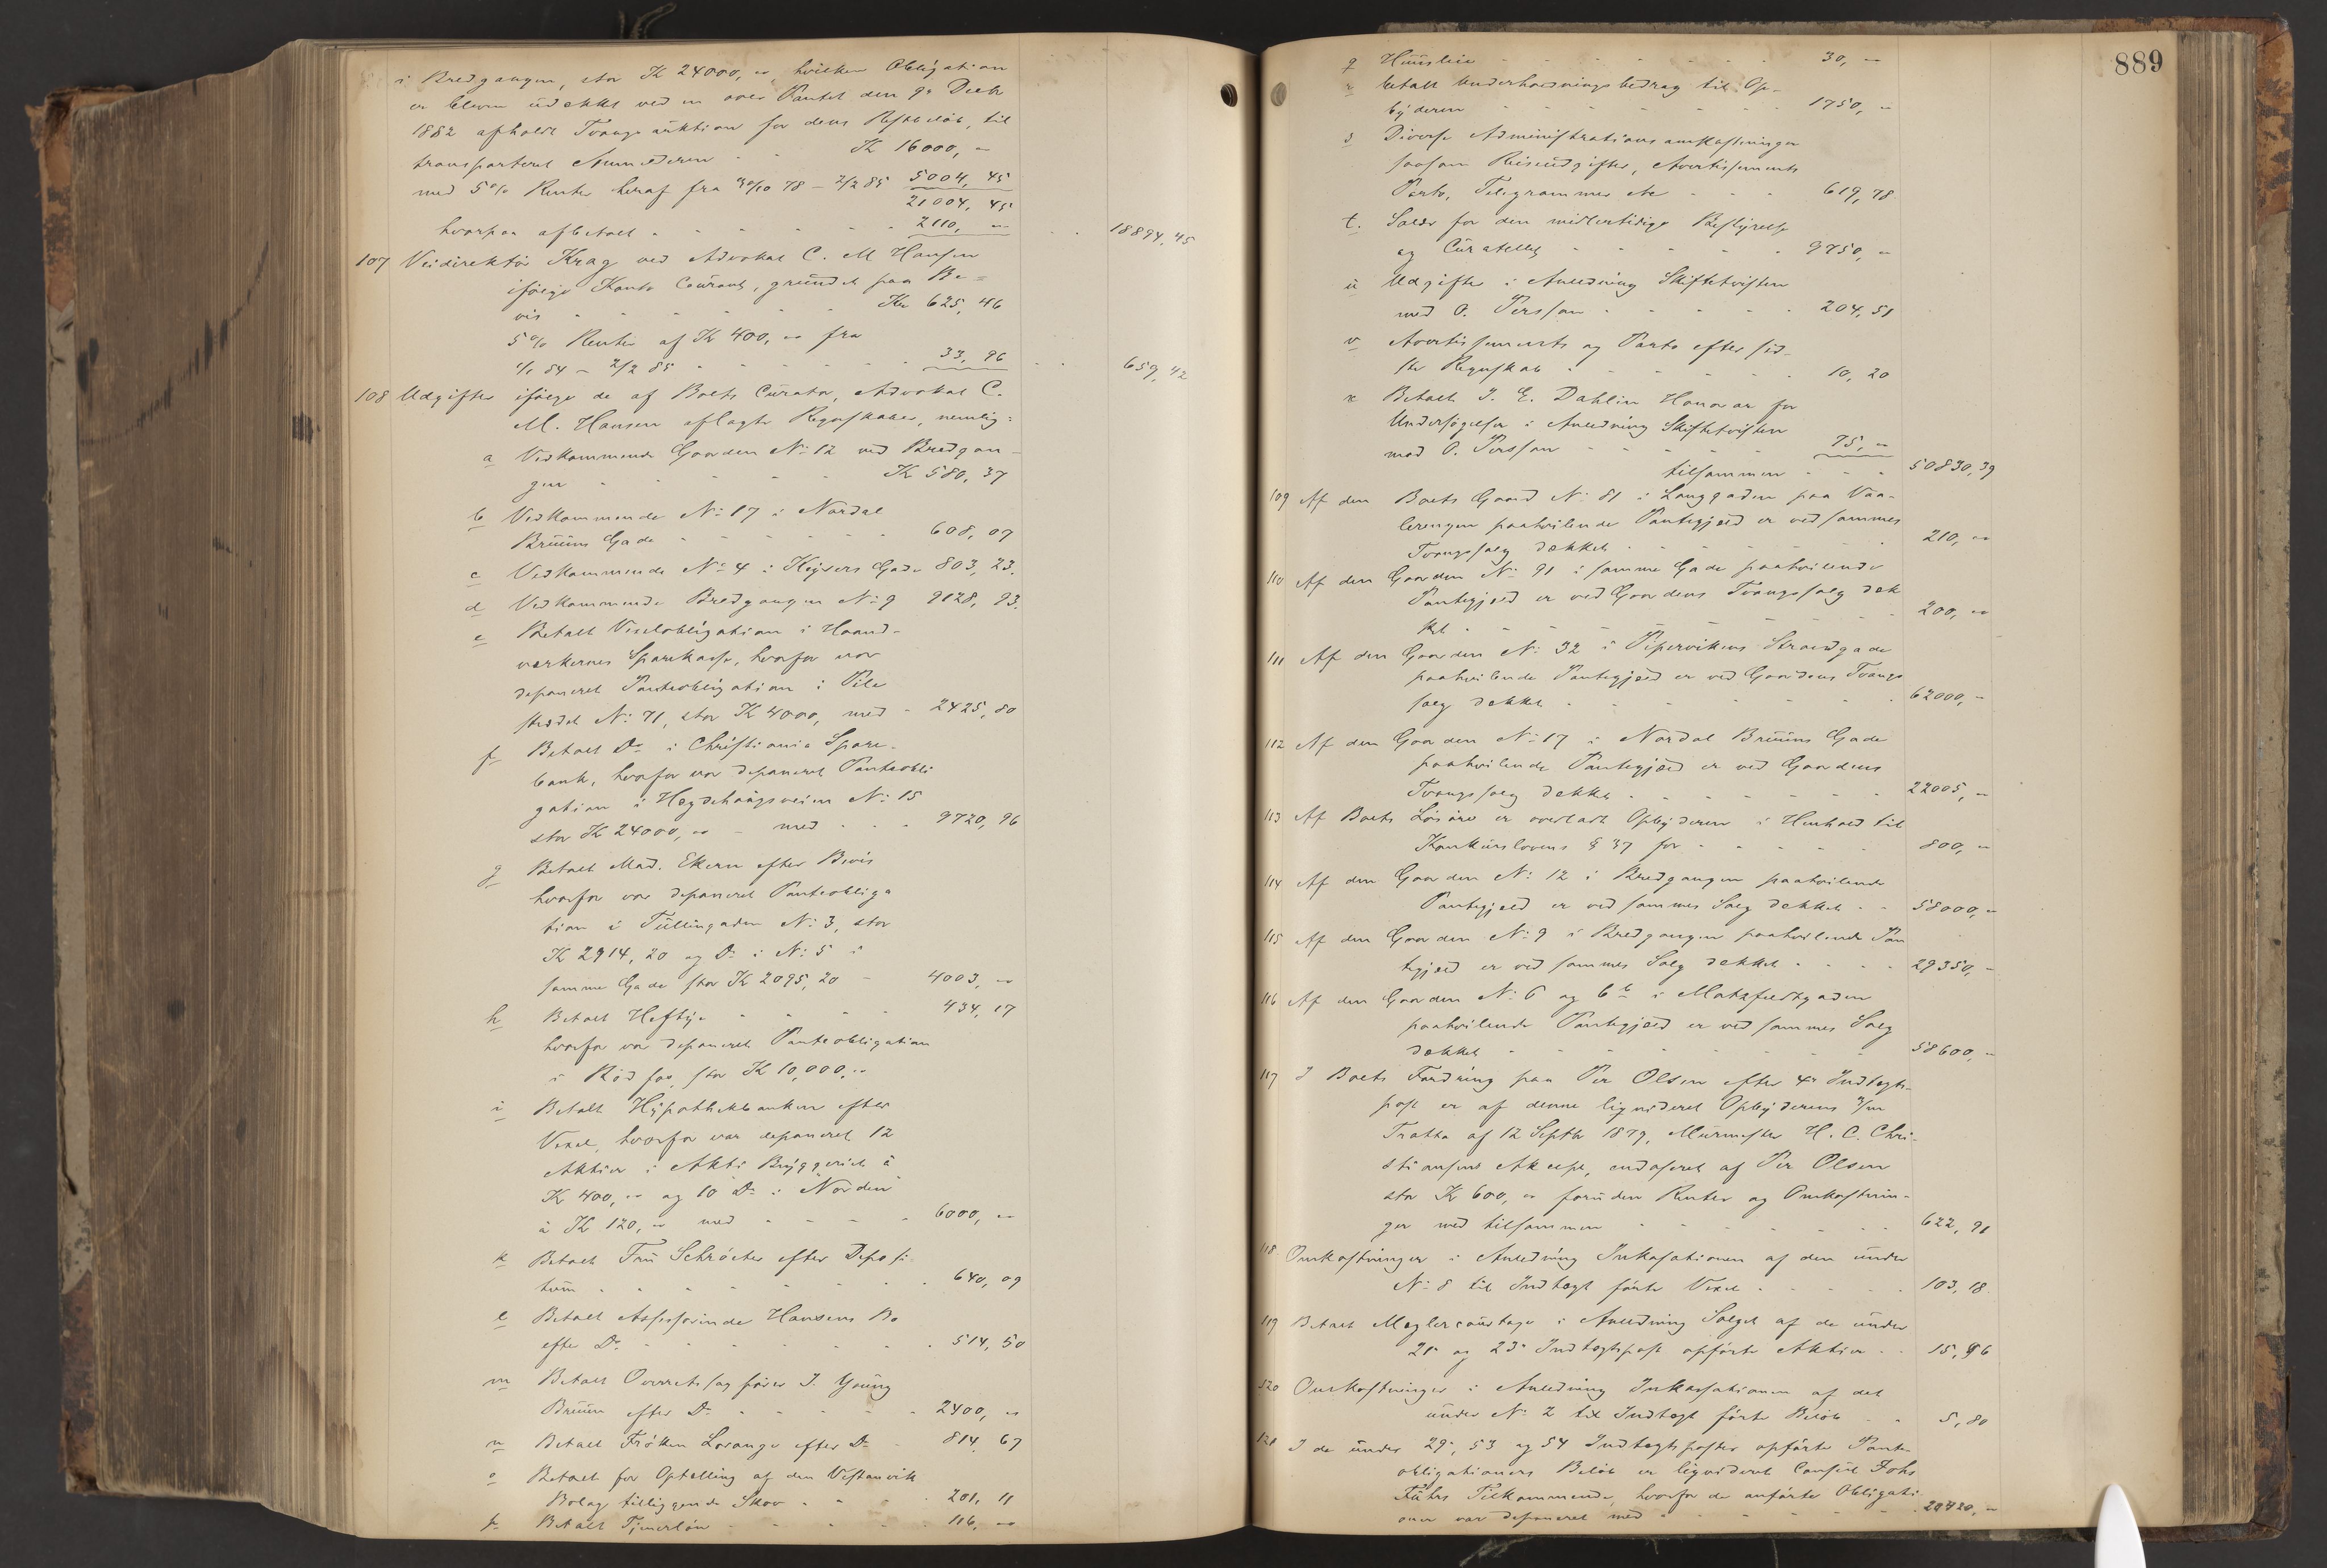 i Bredgangen, stor Kr 24000, " hvilken Obligation
er bleven udækket ved en over Pantet den 9de Decbr
1882 afholdt Tvangsauktion for dens Restbeløb, til
transporteret Anmelderen - - Kr 16000, "
med 5% Renter heraf fra 30/10 78 - 2/2 85 5004, 45
21004, 45
hvorpaa afbetalt - - - - - 2110, " - - 18894, 45
107 Veidirektør Krag ved Advokat C. M Hansen
ifølge Konto Courant, grundet paa Be-
vis - - - - - Kr 625, 46
5% Renter af Kr 400, " fra
1/6 84 - 2/2 85 - - - - - 33, 96 - - 659, 42
108 Udgifter ifølge de af Boets Curator, Advokat C.
M. Hansen aflagte Regnskaber, nemlig:
a Vedkommende Gaarden No 12 ved Bredgan-
gen - - - - - Kr 580, 37
b Vedkommende No 17 i Nordal
Bruuns Gade - - - - - 608, 07
c Vedkommende No 4 i Keysers Gade 803, 23.
d Vedkommende Bredgangen No 9 9128, 93.
e Betalt Vexelobligation i Haand-
værkernes Sparekasse, hvorfor var
deponeret Panteobligation i Pile
strædet No 71, stor Kr 4000, med - 2425, 80
f Betalt Do i Christiania Spare-
bank, hvorfor var deponeret Panteobli
gation i Hegdehaugsveien No 15
stor Kr 24000, " - med - - - 9720, 96
g Betalt Mad. Ekern efter Bevis
hvorfor var deponeret Panteobliga
tion i Tullingaden No 3, stor
Kr 2914, 20 og Do i No 5 i
samme Gade stor Kr 2095, 20 - 4003, "
h Betalt Heftye - - - - 434, 17
hvorfor var deponeret Panteobligation
i Rød fos, stor Kr 10,000, "
i Betalt Hypothekbanken efter
Vexel, hvorfor var deponeret 12
Aktier i Akti Bryggeriet à
Kr 400, " og 10 Do i Norden
à Kr 120, " med - - - - 6000, "
k Betalt Fru Schrøeter efter Deposi
tum - - - - - - 640, 09
l Betalt Assessorinde Hansens Bo
efter Do - - - - - - 514, 50
m Betalt Overretssagfører J. Young
Bruun efter Do - - - - - 2400, "
n Betalt Frøken Lovange efter Do - 814, 67
o Betalt for Optælling af den Vestanvik
Bolag tilliggende Skov - - - 201, 11
p Betalt Tjenerløn - - - - - 116, "
889
q Huusleie - - - - - - 30, "
r Betalt Underholdningsbedrag til Op-
byderen - - - - - - 1750, "
s Diverse Administrationsomkostninger
saasom Reiseudgifter, Avertissements
Porto, Telegrammer etc - - - 619, 78
t. Salær for den midlertidige Bestyrelse
og Curatellet - - - - - 9750, "
u Udgifter i Anledning Skiftetvisten
med O. Persson - - - - - 204, 51
v Avertissements og Porto efter sid-
ste Regnskab - - - - - 10, 20
x Betalt J. E. Dahlin Honorar for
Undersøgelser i Anledning Skiftetvisten
med O. Persson - - - - 75, "
tilsammen - - - 50830, 39
109 Af den Boets Gaard No 81 i Langgaden paa Vaa-
lerengen paahvilende Pantegjæld er ved sammes
Tvangssalg dækket - - - - - - 210, "
110 Af den Gaarden No 91 i samme Gade paahvilende
Pantegjæld er ved Gaardens Tvangssalg dæk
ket - - - - - - - - 200, "
111 Af den Gaarden No 32 i Pipervikens Strandgade
paahvilende Pantegjæld er ved Gaardens Tvangs
salg dækket - - - - - - - 62000, "
112 Af den Gaarden No 17 i Nordal Bruuns Gade
paahvilende Pantegjæld er ved Gaardens
Tvangssalg dækket - - - - - - 22005, "
113 Af Boets Løsøre er overladt Opbyderen i Henhold til
Konkurslovens § 37 for - - - - - 800, "
114 Af den Gaarden No 12 i Bredgangen paahvilende
Pantegjæld er ved sammes Salg dækket - - 58000, "
115 Af den Gaarden No 9 i Bredgangen paahvilende Pan
tegjæld er ved sammes Salg dækket - - - - 29350, "
116 Af den Gaarden No 6 og 6b i Matzfeldtgaden
paahvilende Pantegjæld er ved sammes Salg
dækket - - - - - - - - 58600, "
117 I Boets Fordring paa Per Olsen efter 4de Indtægts-
post er af denne likvideret Opbyderens 3/m
Tratta af 12 Septbr 1879, Murmester H. C. Chri-
stiansens Akcept, endosseret af Per Olsen
stor Kr 600, " foruden Renter og Omkostnin-
ger med tilsammen - - - - - - 622, 91
118 Omkostninger i Anledning Inkassationen af den under
No 8 til Indtægt førte Vexel - - - - - 103, 18.
119 Betalt Meglercourtage i Anledning Salget af de under
21de og 23de Indtægtspost opførte Aktier - - 15, 96
120 Omkostninger i Anledning Inkassationen af det
under No 2 til Indtægt førte Beløb - - 5, 80
121 I de under 29de, 53 og 54 Indtægtsposter opførte Pante
obligationers Beløb er likvideret Consul Johs
Fuhrs Tilkommende, hvorfor de anførte Obligati
oner var deponeret med - - - - - - 22420, "